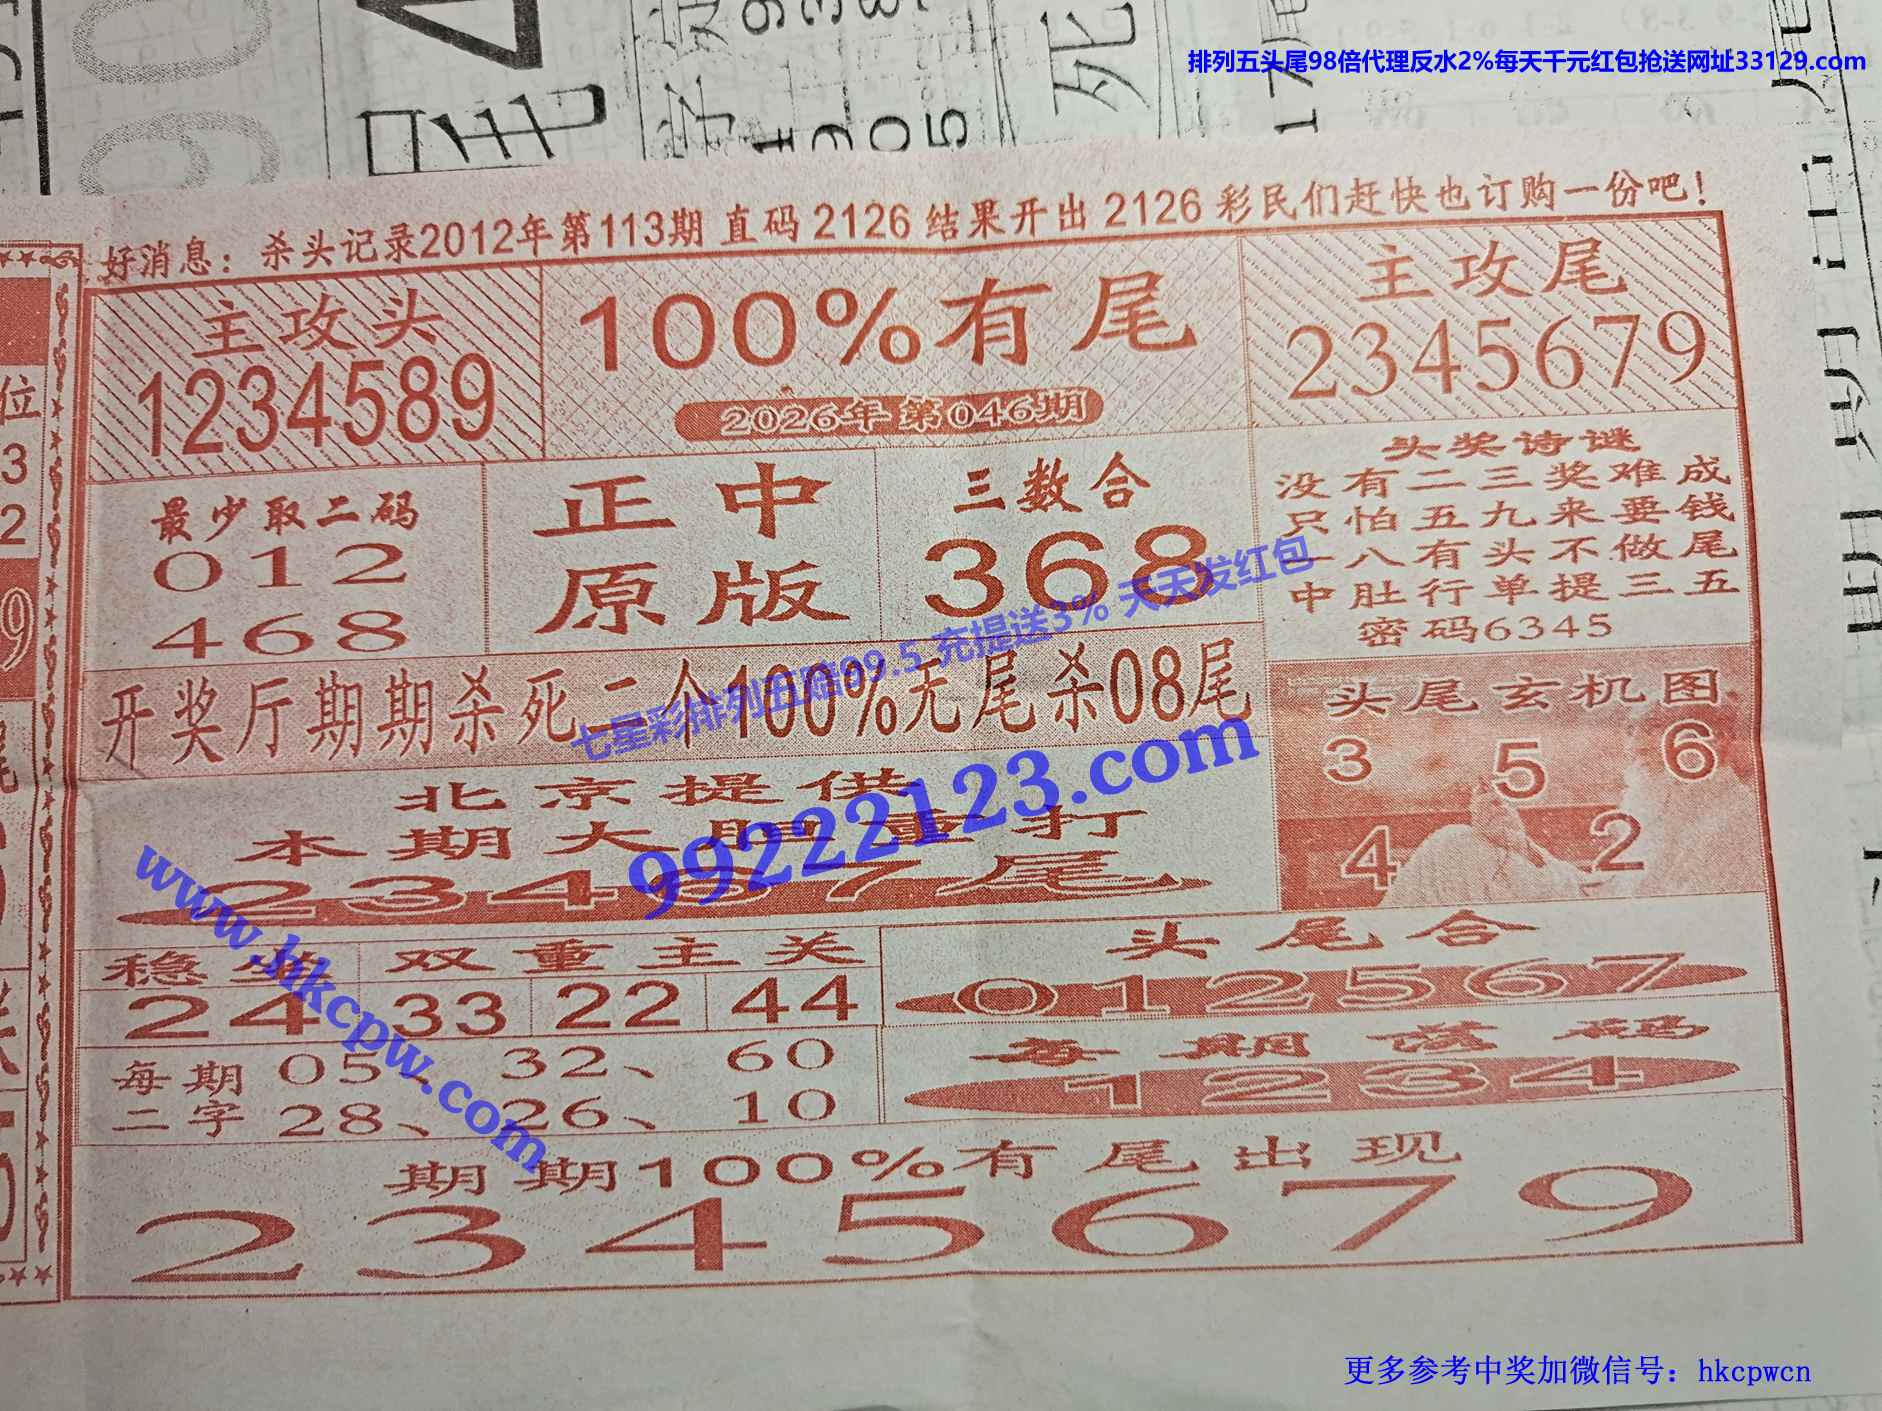 排列五头尾98倍代理反水2%每天千元红包抢送网址33129.com
好消息：杀头记录2012年第113期 直码 2126 结果开出 2126 彩民们赶快也订购一份吧！
主攻头
1234589
100%有尾
2026年第046期
主攻尾
2345679
最少取二码
012
468
正中
原版
三数合
368
头奖诗谜
没有二三奖难成
只怕五九来要钱
一八有头不做尾
中肚行单提三五
密码6345
开奖厅期期杀死二个100%无尾杀08尾
七星彩排列五赔99.5 充提送3% 天天发红包
99222123.com
头尾玄机图
3 5 6
4 2
北京提供
本期大胆重打
23467尾
www.hkcpw.com
稳坐
24
双重主关
33 22 44
头尾合
012567
每期二字
05、32、60
28、26、10
每期落码
1234
期期100%有尾出现
2345679
更多参考中奖加微信号：hkcpwcn